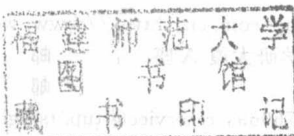 福建师范大学
图书馆
藏书印记